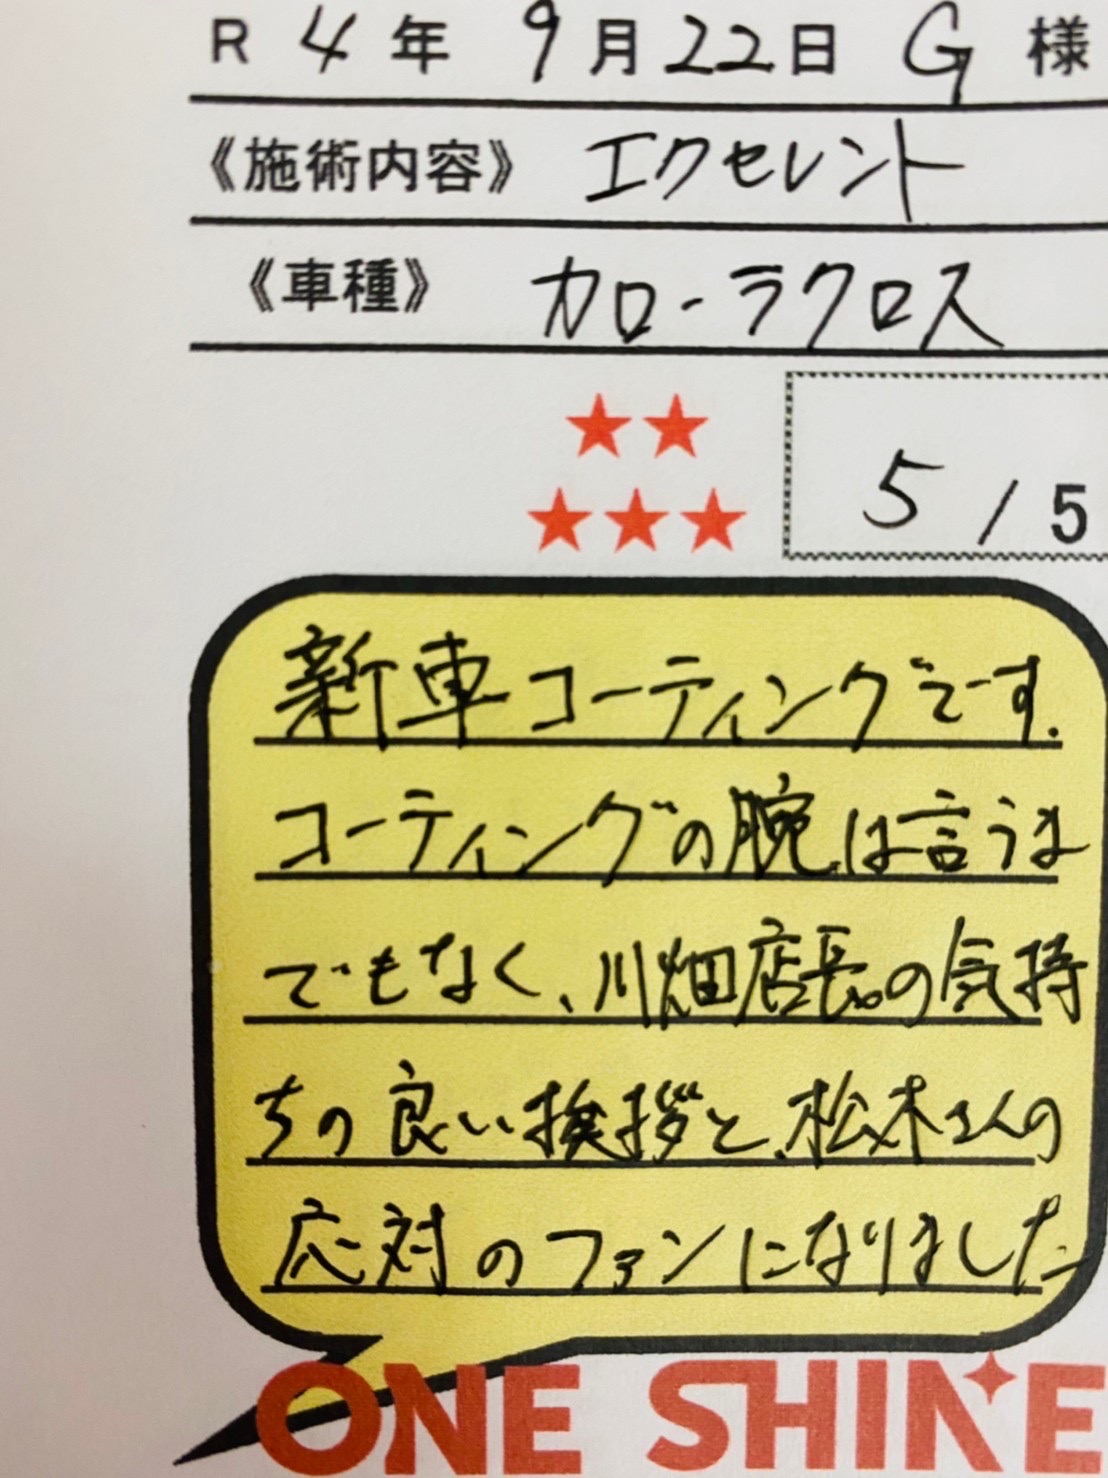 R 4年 9月22日 G 様
《施術内容》 エクセレント
《車種》 カローラクロス
★★
★★★ 5/5
新車コーティングです.
コーティングの腕は言うま
でもなく、川畑店長の気持
ちの良い挨拶と、松木さんの
応対のファンになりました
ONE SHINE